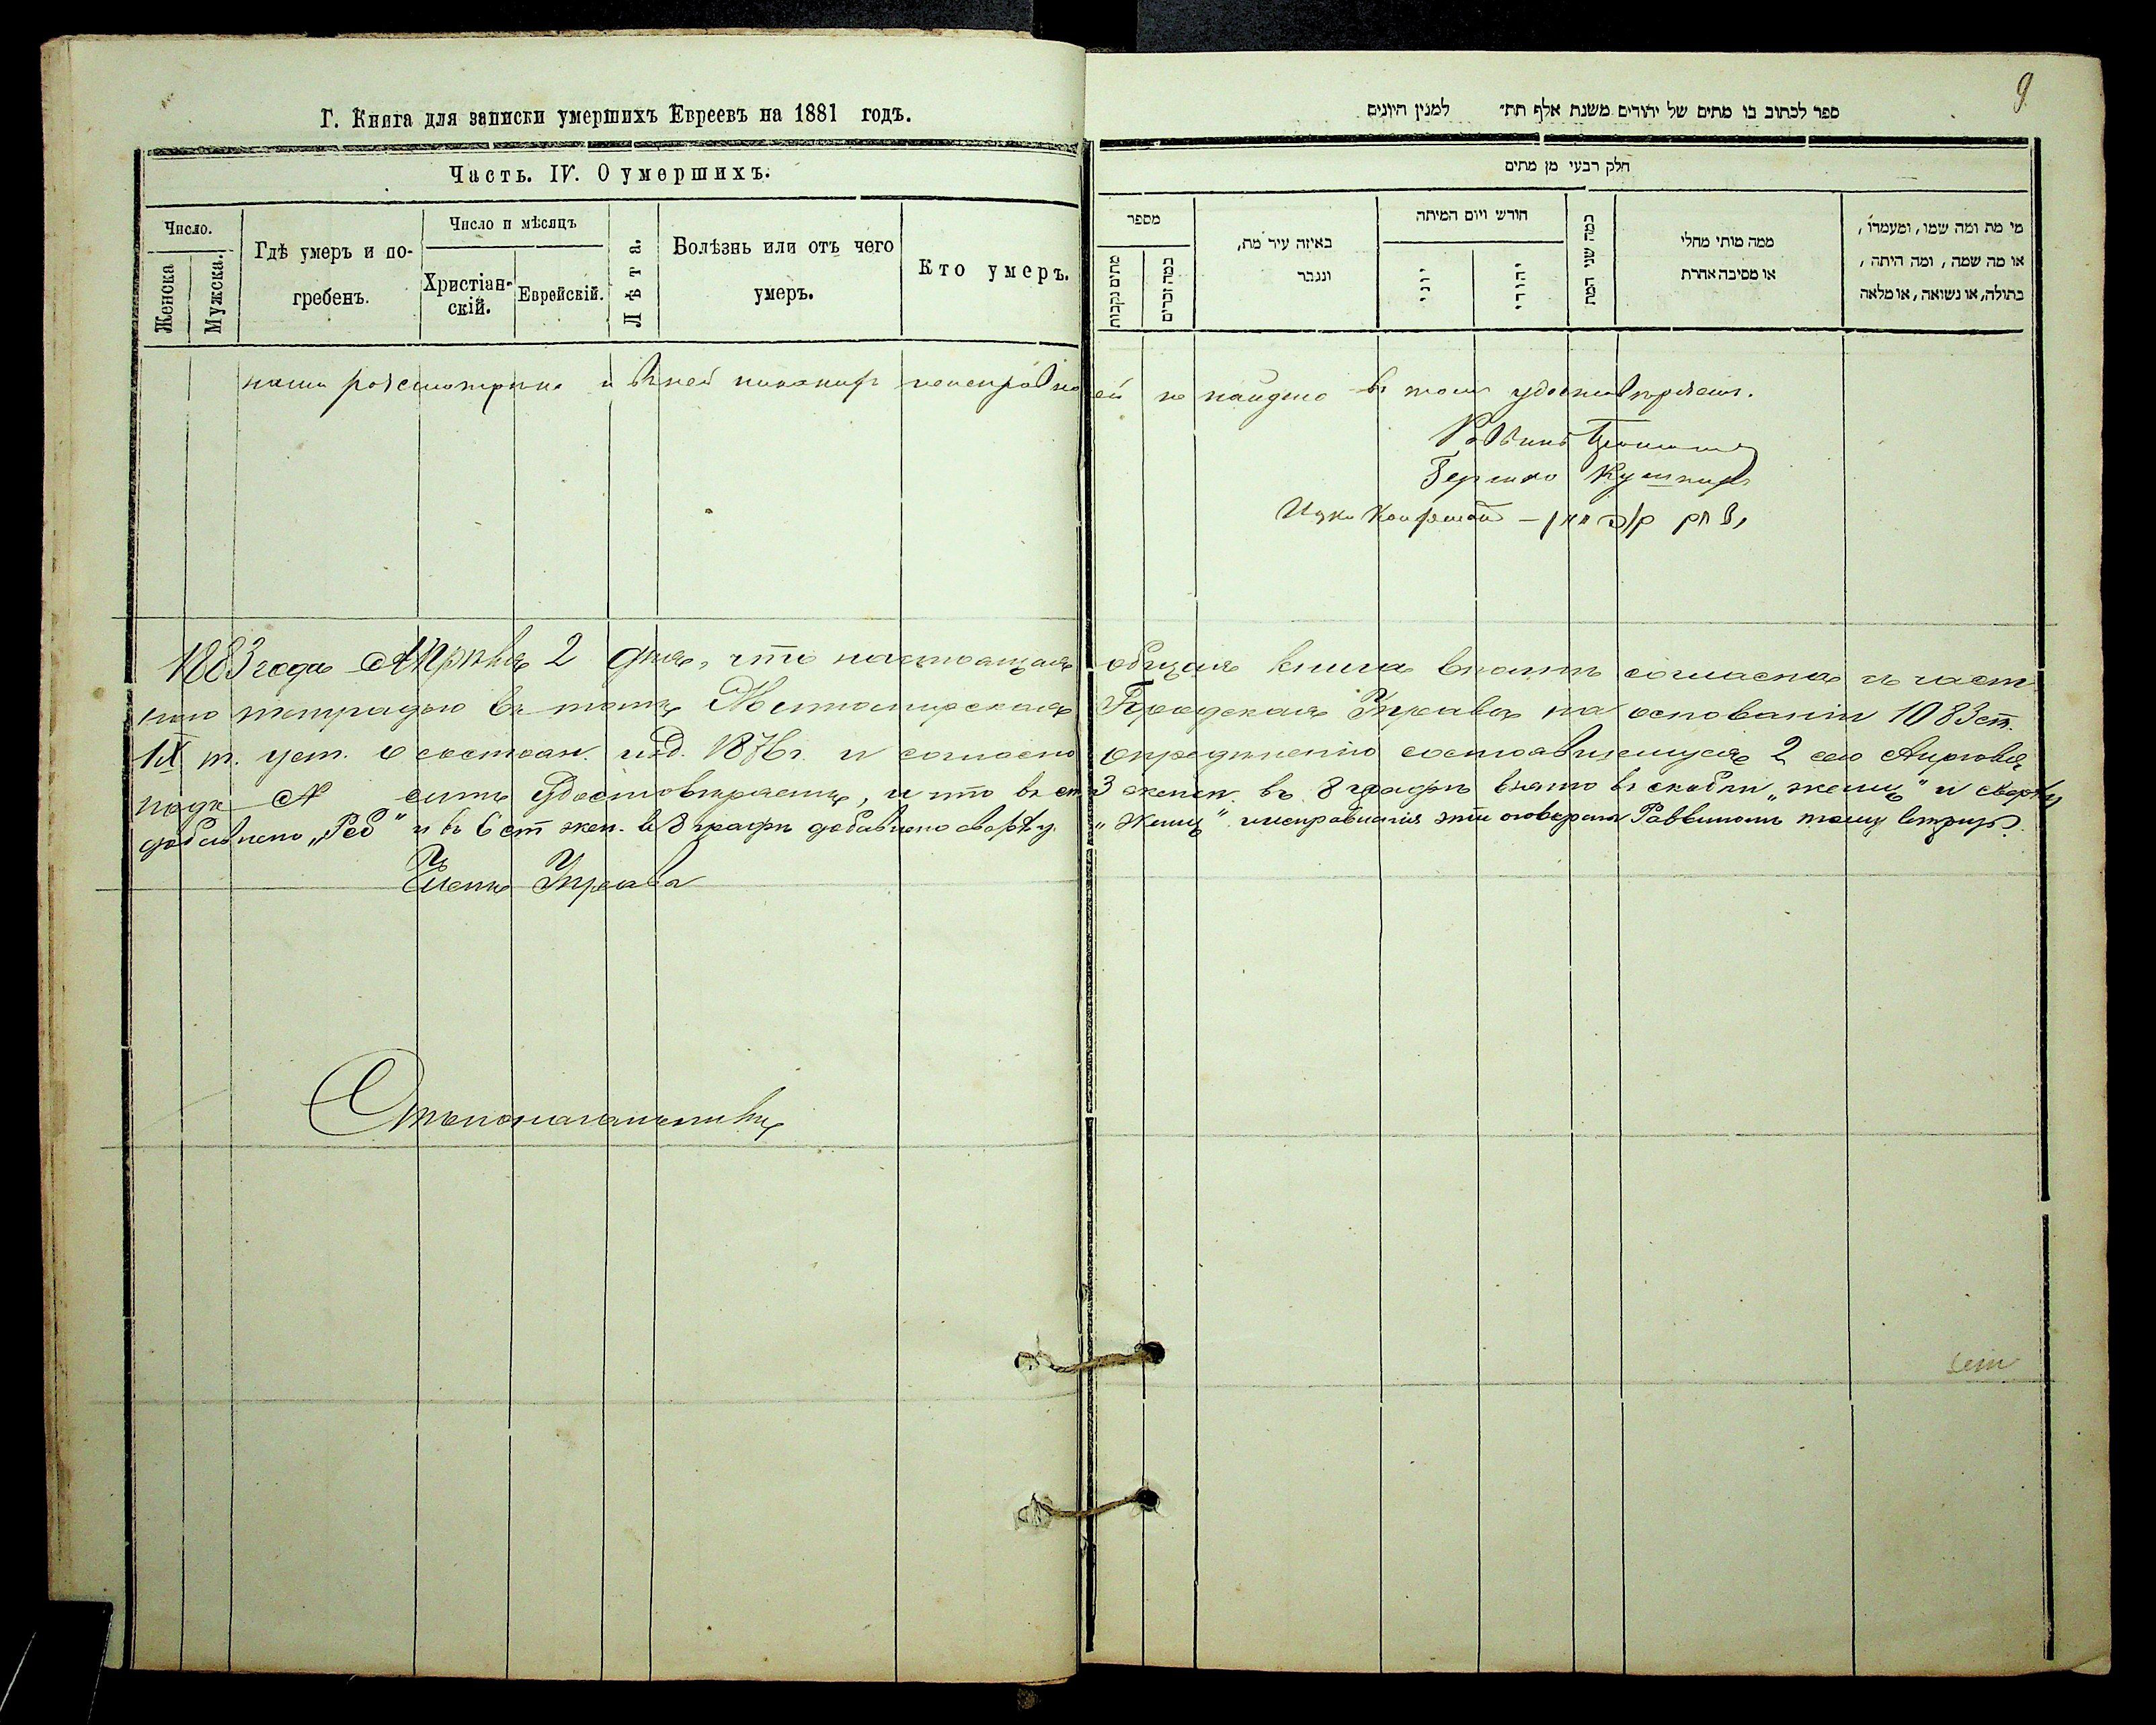 Г. Книга для записки умершихъ Евреевъ на 1881 годъ.
Часть. IV. О умершихъ.
Число.
Женска
Мужска.
Гдѣ умеръ и по-
гребенъ.
Число и мѣсяцъ
Христіан-
скій.
Еврейскій.
Лѣта.
Болѣзнь или отъ чего
умеръ.
Кто умеръ.
9
ספר לכתוב בו מתים של יהודים משנת אלף תת״ למנין היונים
חלק רבעי מן מתים
מספר
מתים נקבות
כמה זכרים
באיזה עיר מת,
ונגבר
חודש ויום המיתה
יוני
יהודי
כמה שני המת
ממה מותי מחלי
או מסיבה אחרת
מי מת ומה שמו, ומעמדו,
או מה שמה, ומה היתה,
בתולה, או נשואה, או מלאה
нами разсмотрена и въ ней никакихъ неисправностей не найдено въ томъ удостовѣряемъ.
Раввинъ
Гершко Кушниръ
Ицко
1883 года Апрѣля 2 дня, что настоящая общая книга вполнѣ согласна съ част
ною тетрадью въ томъ Житомирская Городская Управа на основаніи 1083 ст.
IX т. уст. о состоян. изд. 1876 г. и согласно опредѣленію состоявшемуся 2 сего Апрѣля
подъ № симъ удостовѣряетъ, и что въ ст 3 женск. въ 8 графѣ взято въ скобки „женщ" и сверху
добавлено „Реб" и въ 6 ст жен. въ 8 графѣ добавлено сверху „Женщ" исправленія эти оговорены Раввиномъ
Членъ Управы
Столоначальникъ